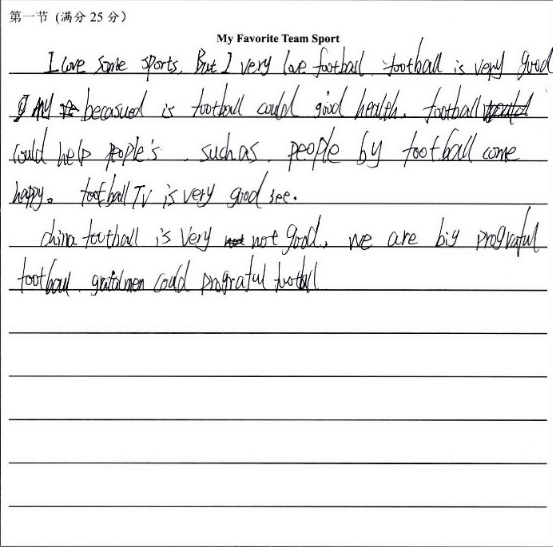 第一节 (满分 25 分)
My Favorite Team Sport
I love some sports. But I very love football. football is very good
becasued is football could giod health. football
could help people's. such as. people by football come
happy. football TV is very good see.
china football is very not good, we are big prograful
football. could prograful football